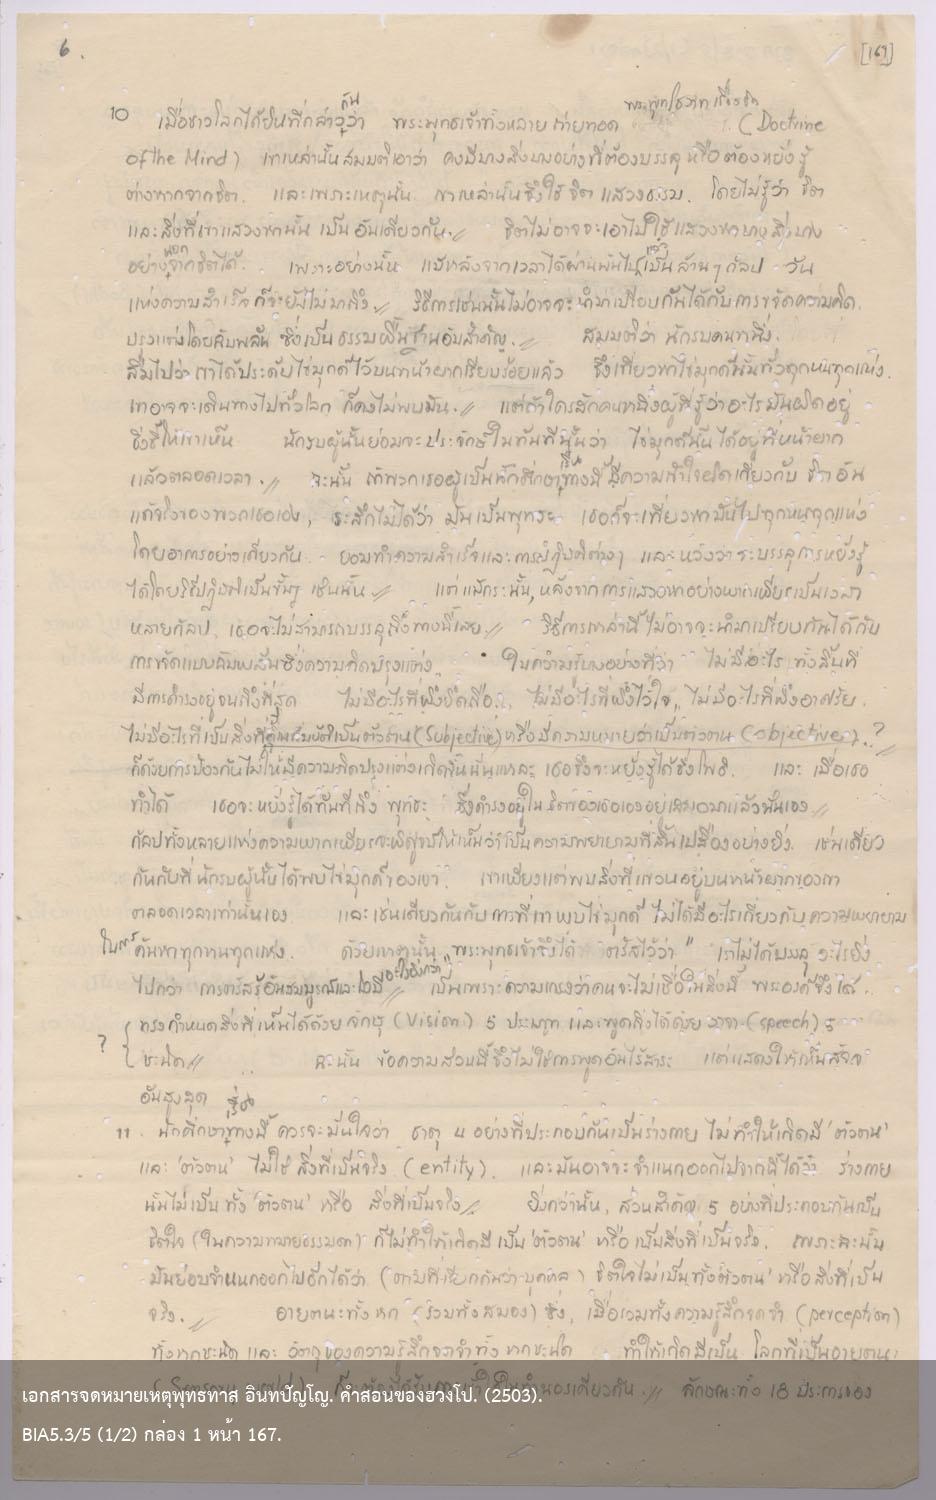 6. [167]
10 เมื่อชาวโลกได้ยินที่กล่าวกันว่า พระพุทธเจ้าทั้งหลาย ถ่ายทอด พระพุทโธวาท เรื่องจิต (Doctrine
of the Mind) เขาเหล่านั้นสมมติเอาว่า คงมีบางสิ่งบางอย่างที่ต้องบรรลุ หรือต้องหยั่งรู้
ต่างหากจากจิต. และเพราะเหตุนั้น เขาเหล่านั้นจึงใช้ จิต แสวงธรรม. โดยไม่รู้ว่า จิต
และสิ่งที่เขาแสวงหานั้น เป็นอันเดียวกัน.// จิตไม่อาจจะเอาไปใช้แสวงหาบางสิ่งบาง
อย่างนอกจากจิตได้. เพราะอย่างนั้น แม้หลังจากเวลาได้ผ่านพ้นไปแล้วเป็นล้านๆ กัลป วัน
แห่งความสำเร็จ ก็จะยังไม่มาถึง // วิธีการเช่นนั้นไม่อาจจะนำมาเปรียบกันได้กับการขจัดความคิด.
ปรุงแต่งโดยฉับพลัน ซึ่งเป็นธรรมพื้นฐานอันสำคัญ.// สมมติว่า นักรบคนหนึ่ง.
ลืมไปว่า เขาได้ประดับไข่มุกด์ไว้บนหน้าผากเรียบร้อยแล้ว ซึ่งเที่ยวหาไข่มุกด์นั้นทั่วทุกหนทุกแห่ง.
เขาอาจจะเดินทางไปทั่วโลก ก็คงไม่พบมัน.// แต่ถ้าใครสักคนหนึ่งผู้ที่รู้ว่าอะไรมันผิดอยู่
ชี้ให้เขาเห็น นักรบผู้นั้นย่อมจะประจักษ์ในทันทีนั้นว่า ไข่มุกด์นั้นได้อยู่ที่หน้าผาก
แล้วตลอดเวลา.// ฉะนั้น ถ้าพวกเธอผู้เป็นนักศึกษาเรื่องทางนี้ มีความเข้าใจผิดเกี่ยวกับ จิต อัน
แท้จริงของพวกเธอเอง, ระลึกไม่ได้ว่า มันเป็นพุทธะ เธอก็จะเที่ยวหามันไปทุกหนทุกแห่ง
โดยอาการอย่างเดียวกัน. ยอมทำความสำเร็จและการปฏิบัติต่างๆ และหวังว่าจะบรรลุการหยั่งรู้
ได้โดยวิธีปฏิบัติเป็นขั้นๆ เช่นนั้น // แต่แม้กระนั้น, หลังจากการแสวงหาอย่างพากเพียรเป็นเวลา
หลายกัลป, เธอจะไม่สามารถบรรลุถึงทางนี้เลย.// วิธีการเหล่านี้ ไม่อาจจะนำมาเปรียบกันได้กับ
การขจัดแบบฉับพลันซึ่งความคิดปรุงแต่ง, ในความรู้บางอย่างที่ว่า ไม่มีอะไร ทั้งสิ้นที่
มีการดำรงอยู่จนถึงที่สุด ไม่มีอะไรที่พึงยึดถือ, ไม่มีอะไรที่พึงไว้ใจ, ไม่มีอะไรที่พึงอาศรัย.
ไม่มีอะไรที่เป็นสิ่งที่ เป็นตัวตน (Subjective) หรือมีความหมายว่าเป็นตัวตน (objective).. ?
ก็ด้วยการป้องกันไม่ให้มีความคิดปรุงแต่งเกิดขึ้นนั่นแหละ เธอจึงจะหยั่งรู้ได้ซึ่งโพธิ. และ เมื่อเธอ
ทำได้ เธอจะหยั่งรู้ได้ทันทีถึง พุทธะ ซึ่งดำรงอยู่ในจิตของเธอเองอยู่เสมอมาแล้วนั่นเอง //
กัลปทั้งหลายแห่งความพากเพียรจะพิสูจน์ให้เห็นว่าเป็นความพยายามที่สิ้นเปลืองอย่างยิ่ง. เช่นเดียว
กันกับที่ นักรบผู้นั้นได้พบไข่มุกด์ของเขา. เขาเพียงแต่พบสิ่งที่แขวนอยู่บนหน้าผากของเขา
ตลอดเวลาเท่านั้นเอง และเช่นเดียวกันกับ การที่เขาพบไข่มุกด์ ไม่ได้มีอะไรเกี่ยวกับความพยายาม
ในการค้นหาทุกหนทุกแห่ง. ด้วยเหตุนั้น พระพุทธเจ้าจึงได้ ตรัสไว้ว่า " เราไม่ได้บรรลุอะไรยิ่ง
ไปกว่า การตรัสรู้อันสมบูรณ์และไม่มีอะไรยิ่งกว่า" // เป็นเพราะความเกรงว่าคนจะไม่เชื่อในสิ่งนี้ พระองค์จึงได้..
? ทรงกำหนดสิ่งที่เห็นได้ด้วยจักษุ (Vision) 5 ประเภท และพูดถึงได้ด้วย วาจา (speech) 5
ชะนิด // ฉะนั้น ข้อความส่วนนี้จึงไม่ใช่การพูดอันไร้สาระ แต่แสดงให้เห็นสัจจะ
อันสูงสุด
11. นักศึกษาเรื่องทางนี้ ควรจะมั่นใจว่า ธาตุ ๔ อย่างที่ประกอบกันเป็นร่างกาย ไม่ทำให้เกิดมี 'ตัวตน'
และ 'ตัวตน' ไม่ใช่ สิ่งที่เป็นจริง (entity). และมันอาจจะจำแนกออกไปจากนี้ได้ว่า ร่างกาย
นั้นไม่เป็นทั้ง 'ตัวตน' หรือ สิ่งที่เป็นจริง // ยิ่งกว่านั้น, ส่วนสำคัญ 5 อย่างที่ประกอบกันเป็น
จิตใจ (ในความหมายธรรมดา) ก็ไม่ทำให้เกิดมีเป็น 'ตัวตน' หรือเป็นสิ่งที่เป็นจริง. เพราะฉะนั้น
มันย่อมจำแนกออกไปอีกได้ว่า (ตามที่เรียกกันว่าบุคคล) จิตใจไม่เป็นทั้ง'ตัวตน' หรือสิ่งที่เป็น
จริง. // อายตนะทั้งหก (รวมทั้งสมอง) ซึ่ง, เมื่อรวมทั้งความรู้สึกจดจำ (perception)
ทั้งหกชะนิด และ วัตถุของความรู้สึกจดจำทั้งหกชะนิด ทำให้เกิดมีเป็น โลกที่เป็นอายตนะ
ในทำนองเดียวกัน.// ลักษณะทั้ง 18 ประการของ
เอกสารจดหมายเหตุพุทธทาส อินทปัญโญ. คำสอนของฮวงโป. (2503).
BIA5.3/5 (1/2) กล่อง 1 หน้า 167.